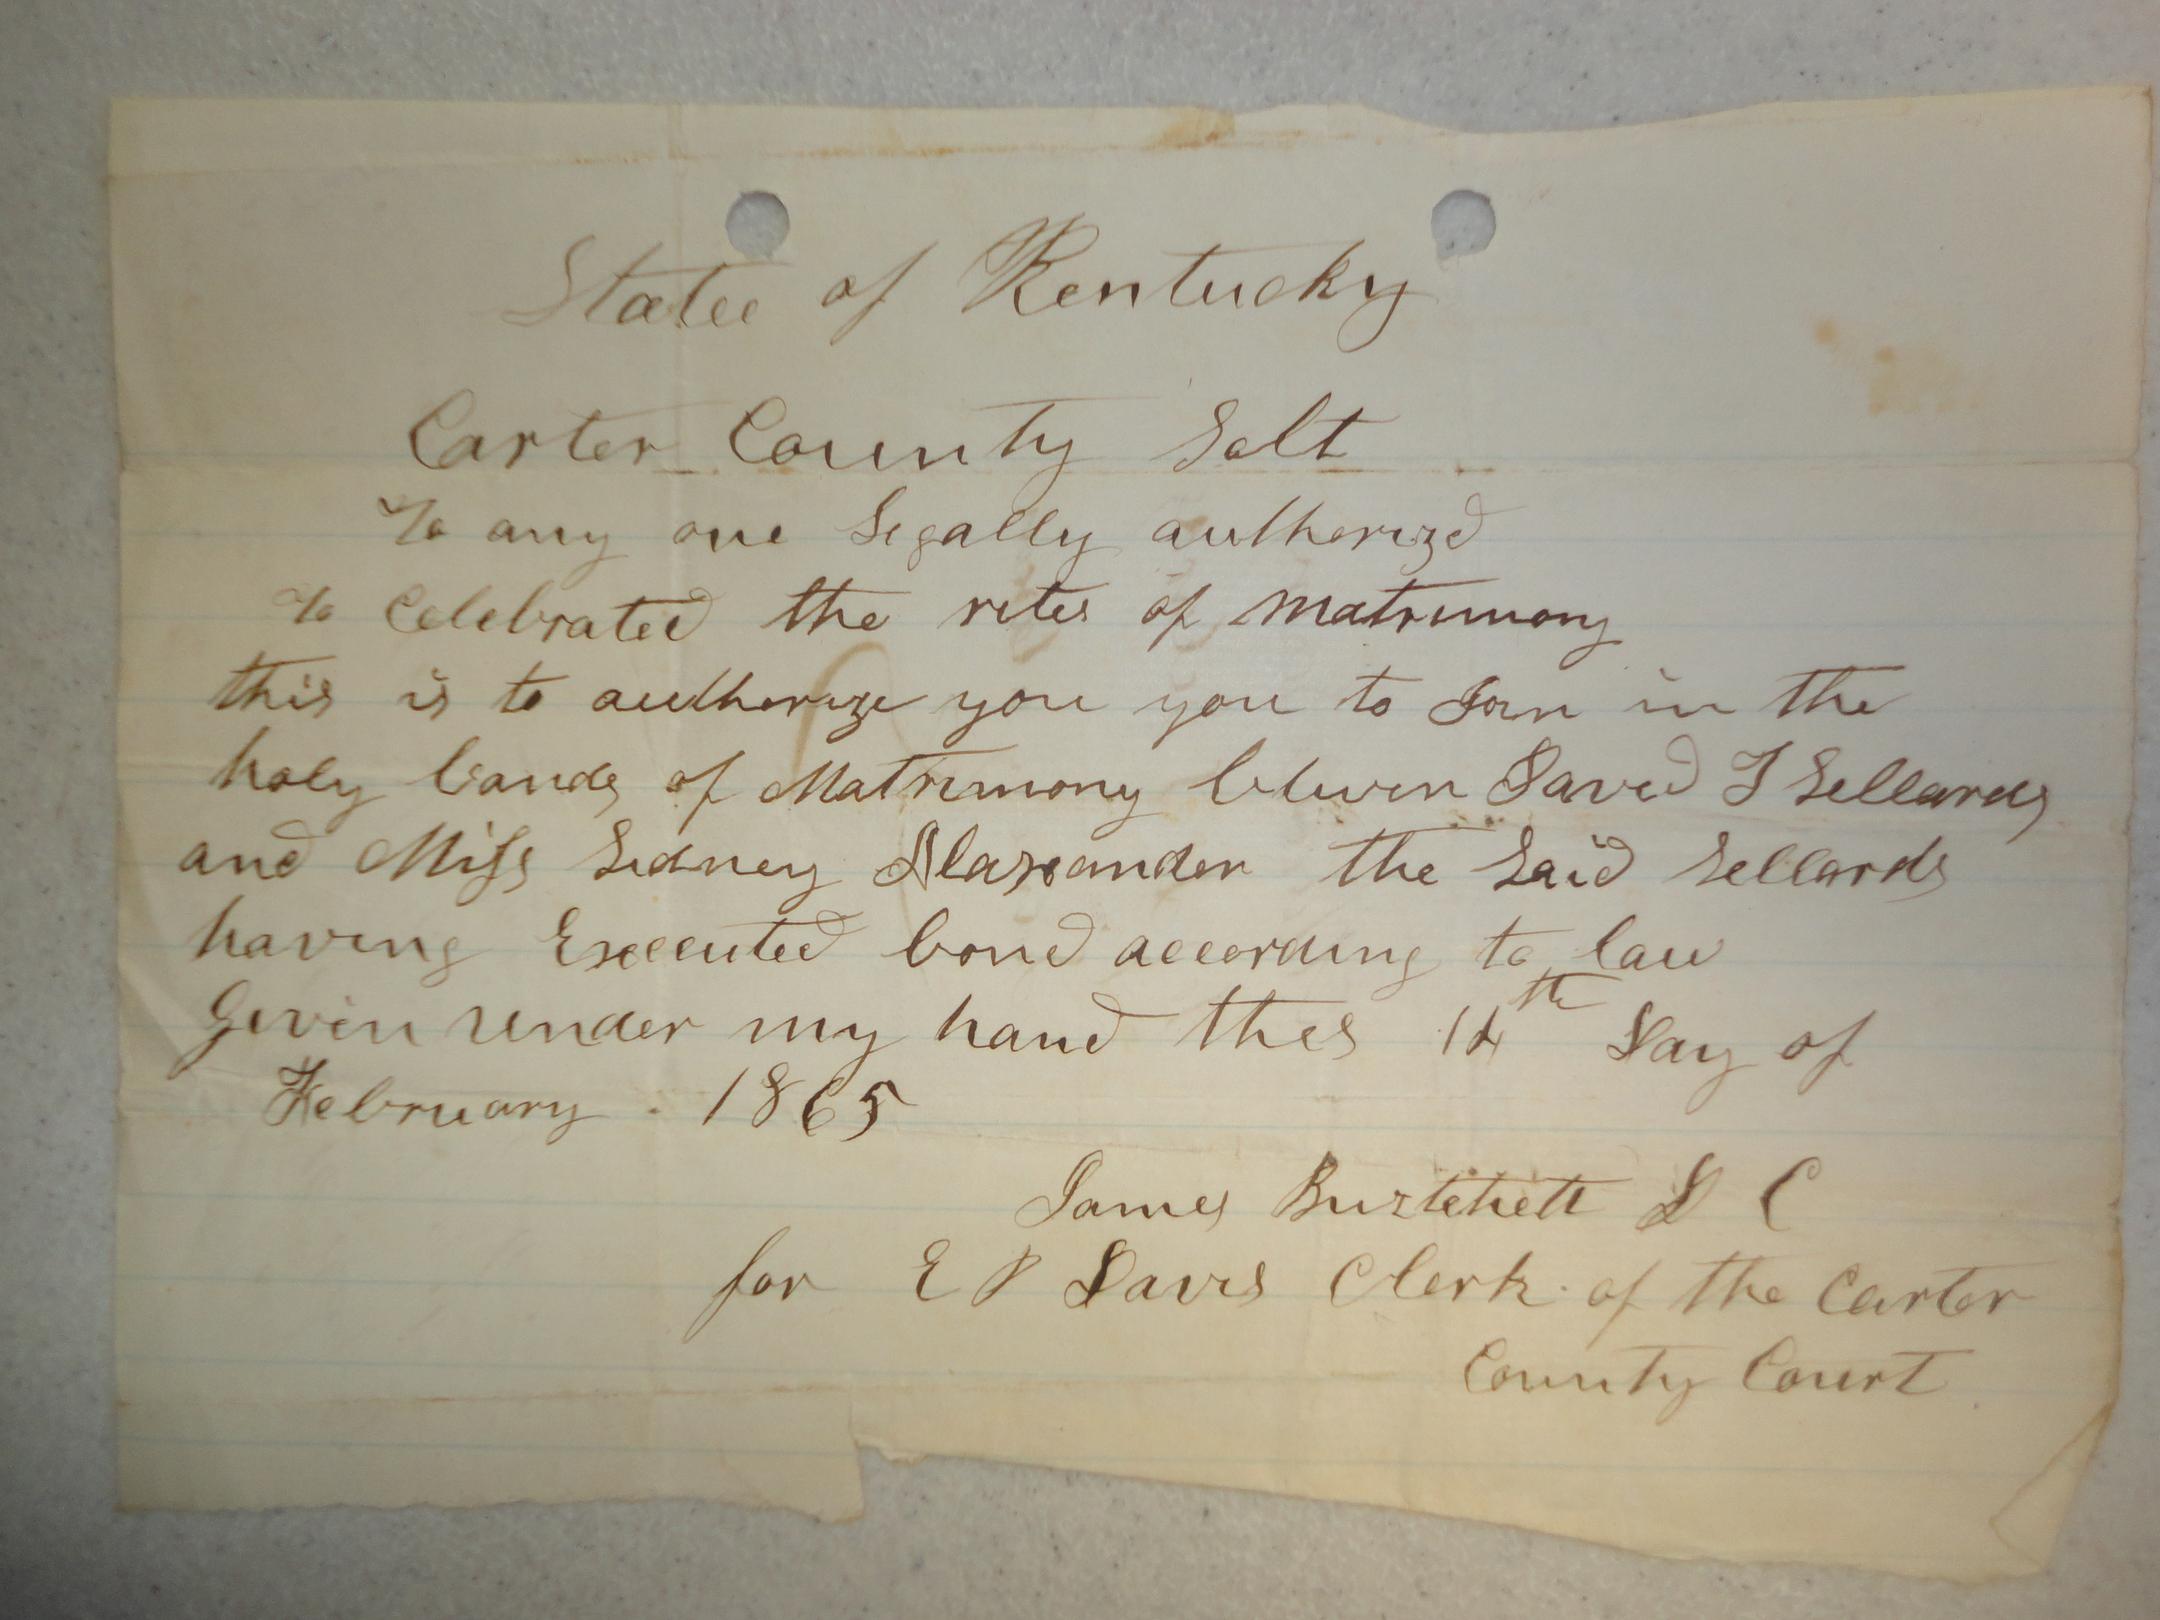 State of Kentucky
Carter County Sclt
To any one Legally authorized
to Celebrated the rites of Matrimony
this is to authorize you you to Join in the
holy bands of Matrimony between David T Sellards
and Miss Sidney Alaxander the Said Sellards
having Executed bond according to law
Given under my hand this 14th Day of
February . 1865
James D C
for E P Davis Clerk of the Carter
County Court